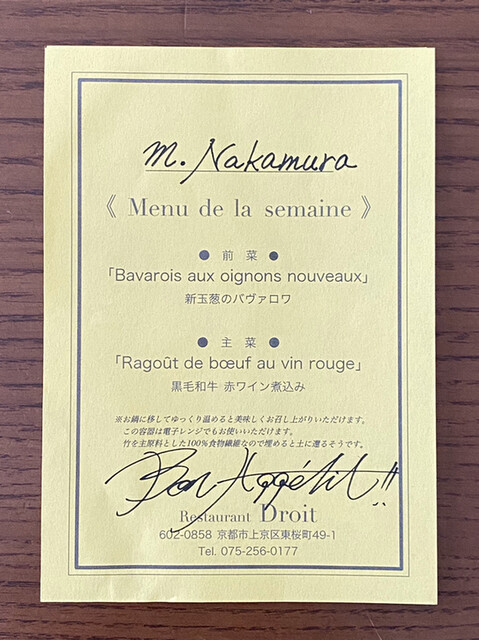 M. Nakamura
《 Menu de la semaine 》
● 前 菜 ●
「Bavarois aux oignons nouveaux」
新玉葱のバヴァロワ
● 主 菜 ●
「Ragoût de bœuf au vin rouge」
黒毛和牛 赤ワイン煮込み
※お鍋に移してゆっくり温めると美味しくお召し上がりいただけます。
この容器は電子レンジでもお使いいただけます。
竹を主原料とした100%食物繊維なので埋めると土に還るそうです。
Bon Appétit!!
Restaurant Droit
602-0858 京都市上京区東桜町49-1
Tel. 075-256-0177